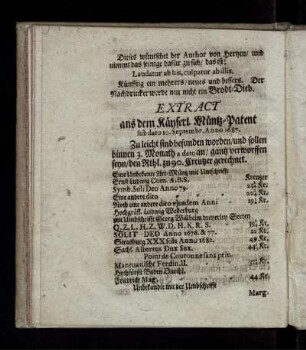 Dieses wünschet der Author von Herzen/ und
nimmt das seinige dafür zu sich/ das ist:
Laudatur ab his, culpatur ab illis.
Künfftig ein mehrers/ neues und bessers. Der
Nachdrucker werde nur nicht ein Brodt-Dieb.
EXTRACT
aus dem Käyserl. Müntz-Patent
sub dato 10. Septembr. Anno 1687.
Zu leicht sind befunden worden/ und sollen
binnen 3. Monath a dato an/ gantz verworffen
seyn/ den Rthl. zu 90. Kreutzer gerechnet.
Eine Unbekante Art-Müntz mit Umschrifft: Kreutzer
Ernst Ludwig Com. A.B.S.
Symb. Soli Deo Anno 79.
Eine andere dito
Noch eine andere dito eisadem Anni
Hochgräfl. Ludwig Westerburg
mit Umschrifft Georg Wilhelm dito drey Sorten
Q. Z. L. H. Z. W. D. H. K. R. S.
SOLIT DEO Anno 1676. & 77.
Günsburg XXX solis Anno 1681. 49. Kr.
Sachs. Albertus Dux Sax. 44. Kr.
Point de Couronne sans prin.
Mantuanische Ferdin. II.
Hochfürstl. Baden Durchl.
Friedrich Mag. 44. Kr.
Unbekandte mit der Umbschrifft
Marg.